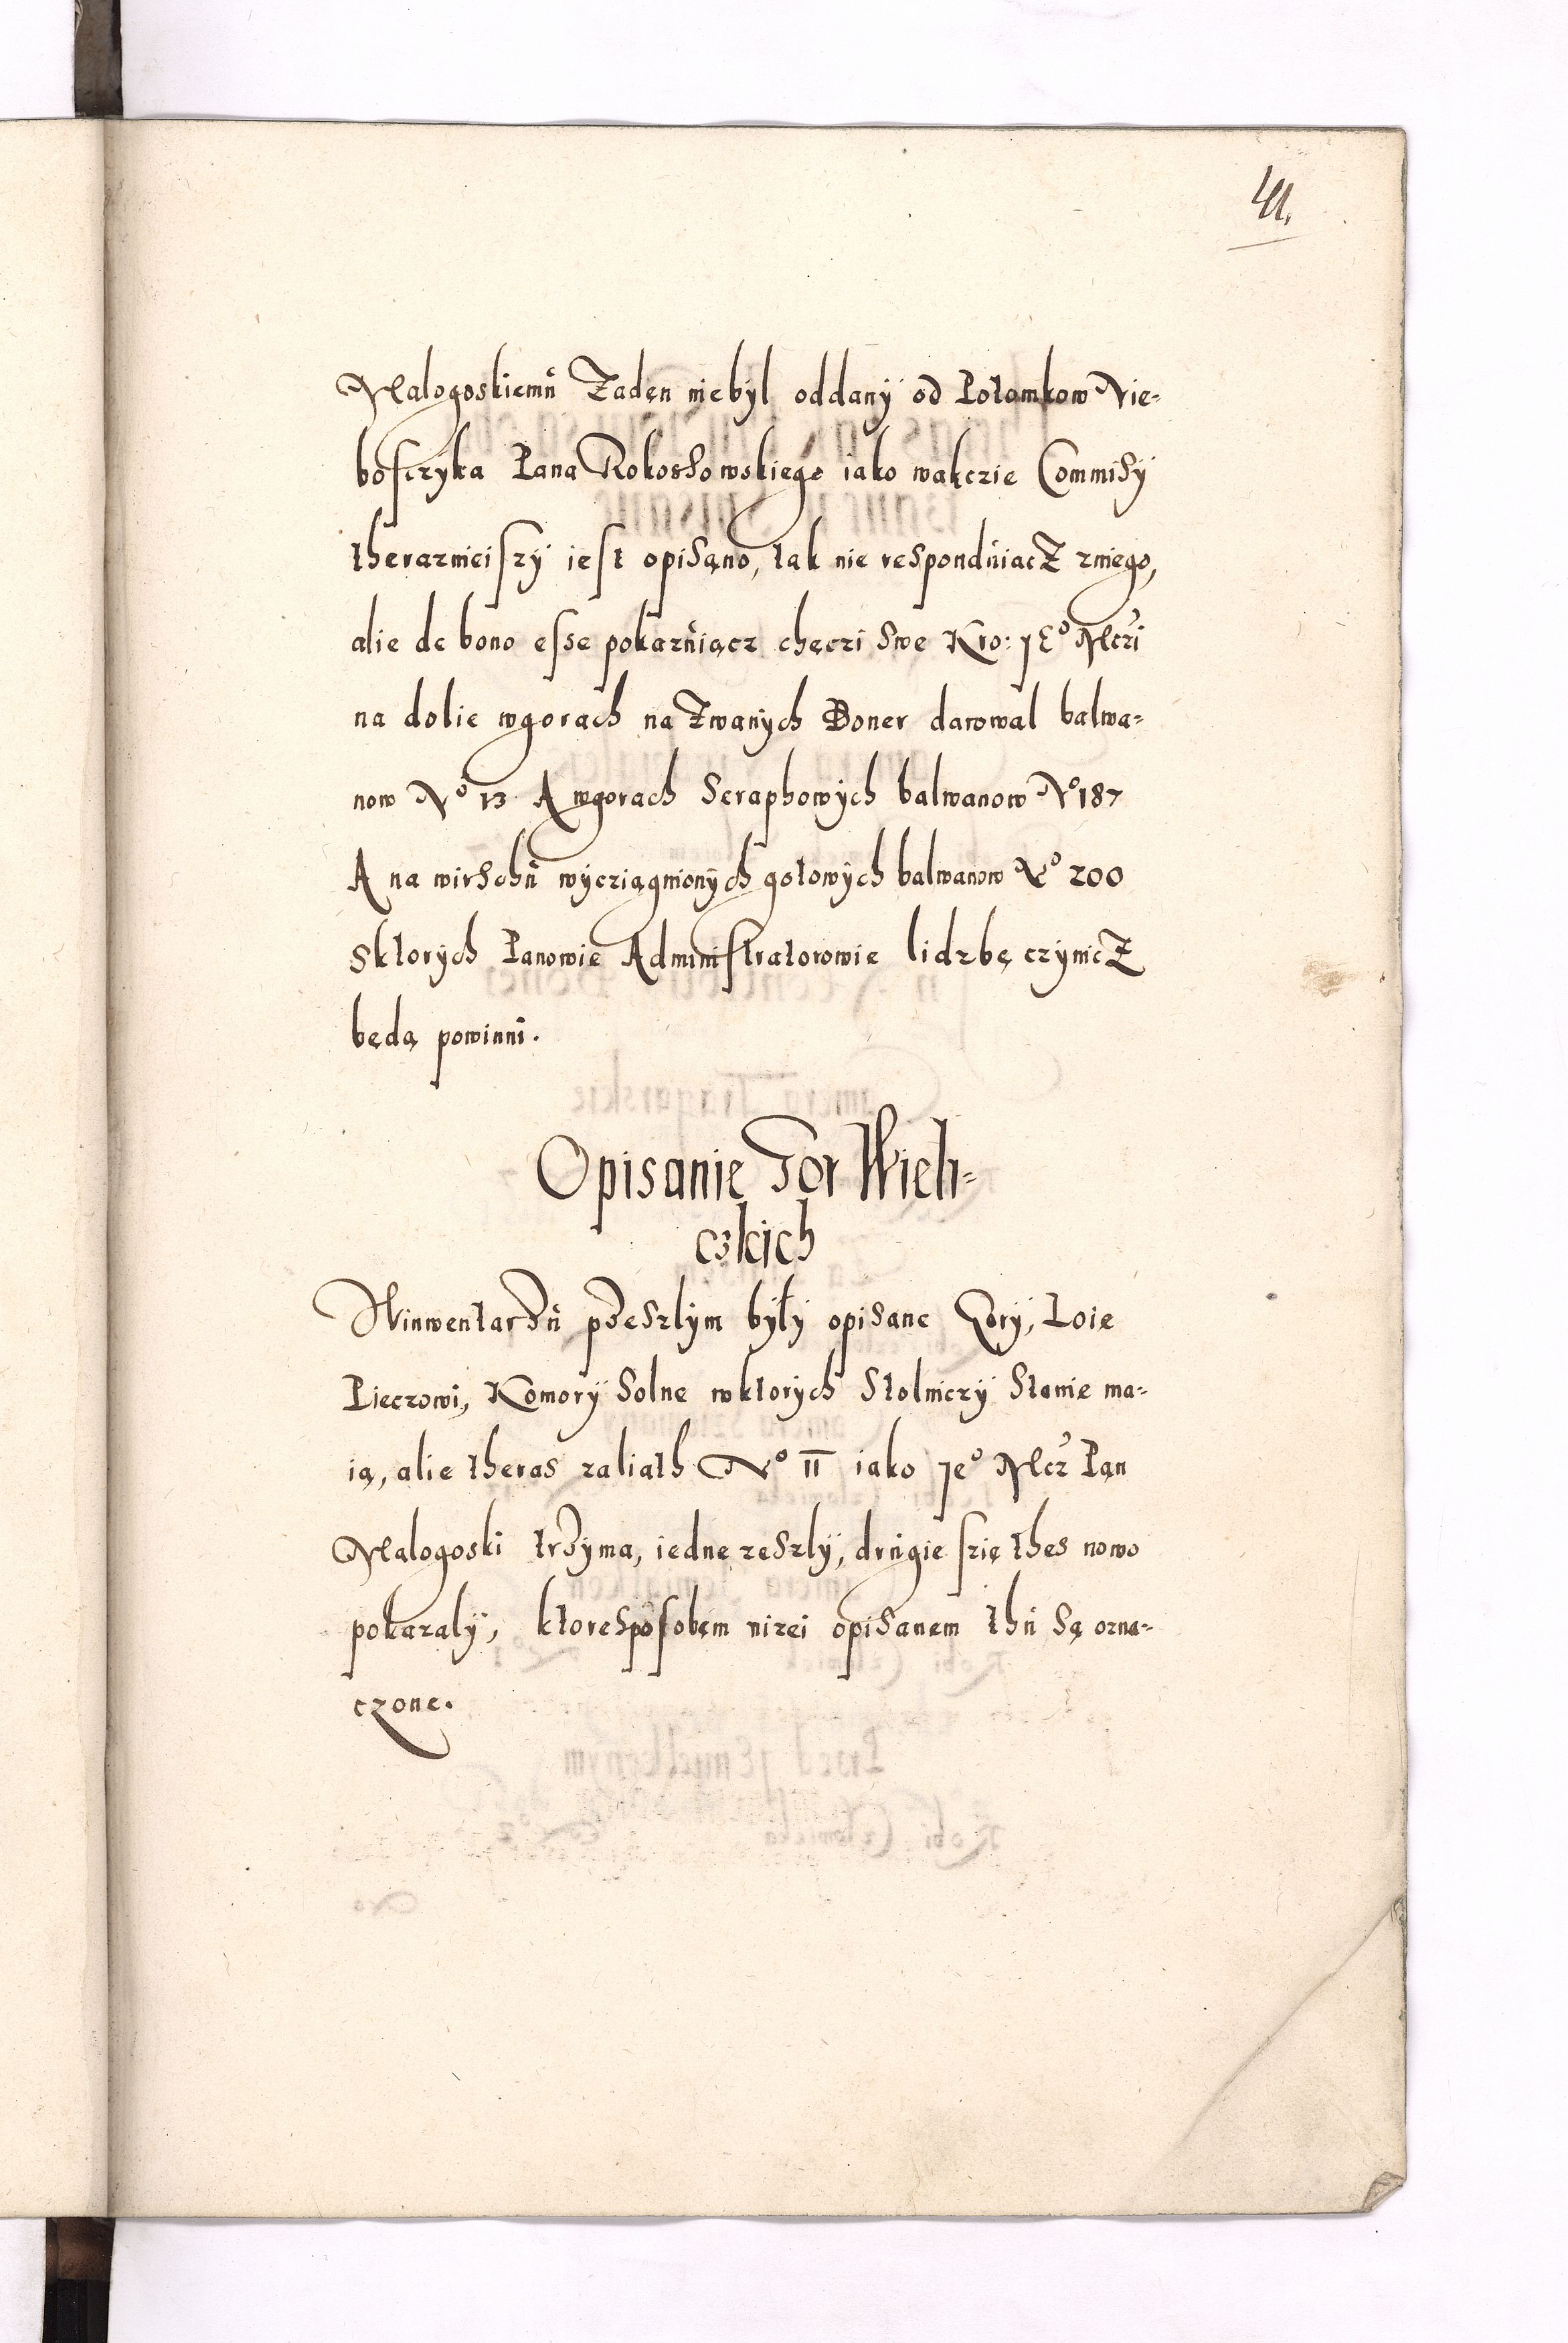 41.
Malogoskiemu Zaden niebyl oddany od Potomkow Nie-
boſczyka Pana Rokoshowskiego iako wakczie Commisy
therazneiſzy ieſt opisano, tak nie responduiacZ zniego,
alie de bono eſse pokazuiącz chęczi swe Kro: JEº Mczi
na dolie wgorach naZwanych Boner darowal balwa-
now Nº 13 A wgorach Seraphowych balwanow Nº 187
A na wirschu wycziągnionych gotowych balwanow Nº 200
sktorych Panowie Adminiſtratorowie lidzbę czynicZ
będą powinni.
Opisanie Gor Wieli-
czkich
Winwentarzu przeszlym były opisane Gory, Toie
Pieczowi, Komory Solne wktorych Stolniczy Stanie ma-
ią, alie theras zaliath Nº 11 iako Jeº Mcz Pan
Malogoski trzyma, iedne zeszly, drugie ſzię thes nowo
pokazaly, ktore spoſobem nizei opisanem thu są ozna-
czone.